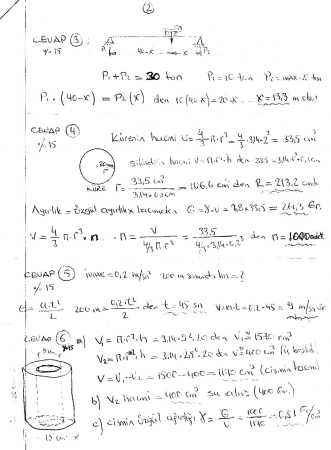 (2)
CEVAP (3)
% 15
40-x x
P₁ P₂
P₁ + P₂ = 30 ton P₁ = 10 ton
P₁ . (40-x) = P₂(x) den 10(40-x) = 20.x x = 13,3 m
CEVAP (4) Kürenin hacmi V = 4/3 π.r³ = 4/3 3.14.2³ = 33,5 cm³
% 15
silindirin hacmi V = π.r².h den 33,5 = 3.14.r².0,1cm
KÜRE r = 33,5 cm³ / 3.14.0,1cm = 106,6 cm den R = 213,2 cm
Ağırlık = özgül ağırlık x hacim den G = γ.v = 7,8 x 33,5 = 261,3 Gr.
V = 4/3 π.r³ . n n = V / 4/3 π.r³ = 33,5 / 4/3 . 3.14.0,2³ den n = 1000 adet
CEVAP (5) ivme = 0,2 m/sn² 200 m sonunda hız = ?
% 15
200 m = 0,2.t² / 2 den t = 45 sn v = a.t = 0,2.45 = 9 m/sn dir
CEVAP (6) a) V₁ = π.r².h = 3.14.5².20 den V₁ = 1570 cm³
% 15
V₂ = π.r².h = 3.14.2,5².20 den V = 400 cm³ (iç boşluk)
V = V₁ - V₂ = 1500 - 400 = 1170 cm³ (cismin hacmi)
b) V₂ hacmi = 400 cm³ su alır (400 Gr.)
c) cismin özgül ağırlığı γ = G/V = 1000/1170 = 0,81 Gr/cm³
10 cm